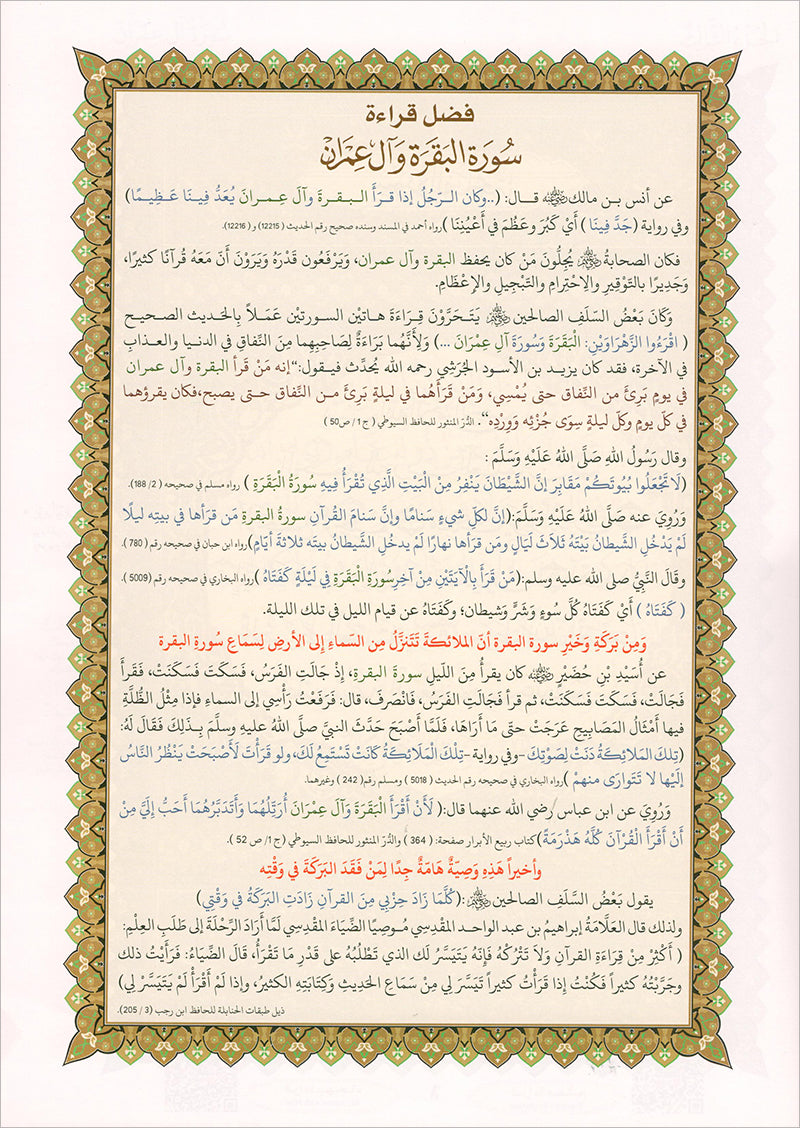 فضل قراءة
سُورَة البَقَرَة وَآل عِمْرَان
عن أنس بن مالك ﵁ قال: (..وكان الرّجُلُ إذا قرَأَ البقرةَ وآلَ عِمرانَ يُعَدُّ فِينَا عَظِيمًا)
وفي رواية (جَدَّ فِينَا ) أَيْ كَبُرَ وعَظُمَ في أَعْيُنِنَا )رواه أحمد في المسند وسنده صحيح رقم الحديث ( 12215) و ( 12216).
فكان الصحابةُ ﵃ يُجِلُّونَ مَنْ كان يحفظ البقرة وآل عمران، ويَرْفَعُون قَدْرَهُ ويَرَوْنَ أَنَّ مَعَهُ قُرآنًا كثيرًا،
وَجَدِيرًا بالتّوْقِيرِ والاحْتِرامِ والتَّبْجِيلِ والإعْظَامِ.
وَكَانَ بَعْضُ السّلَفِ الصالحين ﵃ يَتَحَرَّوْنَ قِرَاءَةَ هـاتيْن السورتيْن عَمَلاً بِالحَديث الصحيح
( اقْرَءُوا الزَّهْرَاوَيْنِ: الْبَقَرَةَ وَسُورَةَ آلِ عِمْرَانَ ...) وَلِأَنَّهُما بَرَاءَةٌ لِصَاحِبِهِما مِنَ النِّفاقِ في الدنيا والعذابِ
في الآخرة، فقد كان يزيد بن الأسود الجَرَشِي رحمه الله يُحدِّث فيقول:“إنه مَنْ قَرأ البقرة وآل عمران
في يومٍ بَرِئَ من النِّفاق حتى يُمْسِي، وَمَنْ قَرَأَهُما في ليلةٍ بَرِئَ من النِّفاق حتى يصبح،فكان يقرؤهما
في كلّ يومٍ وكلّ ليلةٍ سِوَى جُزْئِه وَوِرْدِه“. الدُّرّ المنثور للحافظ السيوطي ( ج 1/ ص50 )
وقال رَسُولُ اللهِ صَلَّى اللهُ عَلَيْهِ وَسَلَّمَ :
(لَا تَجْعَلُوا بُيُوتَكُمْ مَقَابِرَ إنَّ الشَّيْطَانَ يَنْفِرُ مِنْ الْبَيْتِ الَّذِي تُقْرَأُ فِيهِ سُورَةُ الْبَقَرَةِ ) رواه مسلم في صحيحه ( 2/ 188).
وَرُوِيَ عنه صَلَّى اللهُ عَلَيْهِ وَسَلَّمَ:(إنَّ لكلّ شيءٍ سَنامًا وإنَّ سَنامَ القُرآنِ سورةُ البقرةِ مَن قرأها في بيتِه ليلًا
لَمْ يَدْخُلِ الشَّيطانُ بَيْتَهُ ثَلَاثَ لَيَالٍ ومَن قرَأها نهارًا لَمْ يدخُلِ الشَّيطانُ بيتَه ثلاثةَ أيَّامٍ)رواه ابن حبان في صحيحه رقم ( 780 ).
وقَالَ النَّبِيُّ صلى الله عليه وسلم:(مَنْ قَرَأَ بِالْآيَتَيْنِ مِنْ آخِرِسُورَةِ الْبَقَرَةِ فِي لَيْلَةٍ كَفَتَاهُ )رواه البخاري في صحيحه رقم ( 5009).
( كَفَتَاهُ ) أَيْ كَفَتَاهُ كُلَّ سُوءٍ وَشَرٍّ وَشيطان؛ وكَفَتَاهُ عن قيام الليل في تلك الليلة.
وَمِنْ بَرَكَةِ وَخَيْرِ سورة البقرة أنّ الملائكةَ تَتَنزَّلُ مِن السّماءِ إلى الأرضِ لِسَمَاعِ سُورةِ البقرة
عن أُسَيْدِ بْنِ حُضَيْرٍ ﵁ كان يقرأُ مِنَ اللّيلِ سورةَ البقرةِ، إذْ جَالَتِ الفَرَسُ، فَسَكَتَ فَسَكَنَتْ، فَقَرأَ
فَجَالَتْ، فَسَكَتَ فَسَكَنَتْ، ثم قرأ فَجَالَتِ الفَرَسُ، فَانْصَرَفَ، قال: فَرَفَعْتُ رَأْسِي إلى السماءِ فإذا مِثْلُ الظُّلَّةِ
فيها أَمْثَالُ المَصَابِيح عَرَجَتْ حتى مَا أَرَاهَا، فَلَمَّا أَصْبَحَ حَدَّثَ النبيَّ صلَّى اللهُ عليهِ وسلَّمَ بِذلِكَ فَقَالَ لَهُ:
(تِلكَ المَلائِكَةُ دَنَتْ لِصَوْتِكَ -وفي رواية -تِلْكَ الْمَلَائِكَةُ كَانَتْ تَسْتَمِعُ لَكَ، ولو قَرَأْتَ لَأَصْبَحَتْ يَنْظُرُ النّاسُ
إلَيْها لا تَتَوارَى منهمْ )رواه البخاري في صحيحه رقم الحديث ( 5018 ) ومسلم رقم( 242 ) وغيرهما.
وَرُوِيَ عَن ابن عباس رضي الله عنهما قال:( لَأَنْ أَقْرَأَ الْبَقَرَةَ وَآلَ عِمْرَانَ أُرَتِّلُهُمَا وَأَتَدَبَّرُهُمَا أَحَبُّ إِلَيَّ مِنْ
أَنْ أَقْرَأَ الْقُرْآنَ كُلَّهُ هَذْرَمَةً)كتاب ربيع الأبرار صفحة: ( 364 ) والدُّرّ المنثور للحافظ السيوطي (ج1/ ص 52 ).
وأخيراً هَذِهِ وَصِيّةٌ هَامَةٌ جِدًا لِمَنْ فَقَدَ البَرَكَةَ في وَقْتِه
يقول بَعْضُ السَّلَفِ الصالحين ﵃:(كُلَّمَا زَادَ حِزْبِي مِنَ القرآنِ زَادَتِ البَرَكَةُ في وَقْتِي)
ولذلك قال العَلَّامَةُ إبراهيمُ بن عبد الواحد المَقْدِسِي مُوصِيًا الضِّيَاءَ المَقْدِسِي لَمَّا أَرَادَ الرِّحْلَةَ إلى طَلَبِ العِلْمِ:
( أَكْثِرْ مِنْ قِرَاءَةِ القرآنِ وَلاَ تَتْرُكْهُ فَإِنَّهُ يَتَيَسَّرُ لَك الذي تَطْلُبُهُ على قَدْرِ مَا تَقْرَأُ، قَالَ الضِّيَاءُ: فَرَأَيْتُ ذلك
وجَرَّبْتُهُ كثيراً فَكُنْتُ إذا قَرَأْتُ كثيراً تَيَسَّرَ لِي مِنْ سَمَاعِ الحَدِيثِ وَكِتَابَتِهِ الكثيرُ، وإذا لَمْ أَقْرَأْ لَمْ يَتَيَسَّرْ لِي)
ذيل طبقات الحنابلة للحافظ ابن رجب (3 / 205).